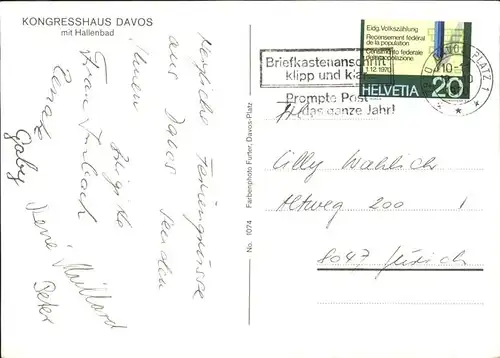 KONGRESSHAUS DAVOS
mit Hallenbad
Herzliche Feriengrüsse
aus Davos senden
Ihnen
Brigitte
Frau
Renate
Gaby
René Maillard
Peter
No. 1074 Farbenphoto Furter, Davos-Platz
Briefkastenanschrift
klipp und klar
Prompte Post
das ganze Jahr!
Eidg. Volkszählung
Recensement fédéral
de la population
Censimento federale
della popolazione
1.12.1970
HELVETIA 20
DAVOS PLATZ 1
Willy
Altweg 200
8047 Zürich